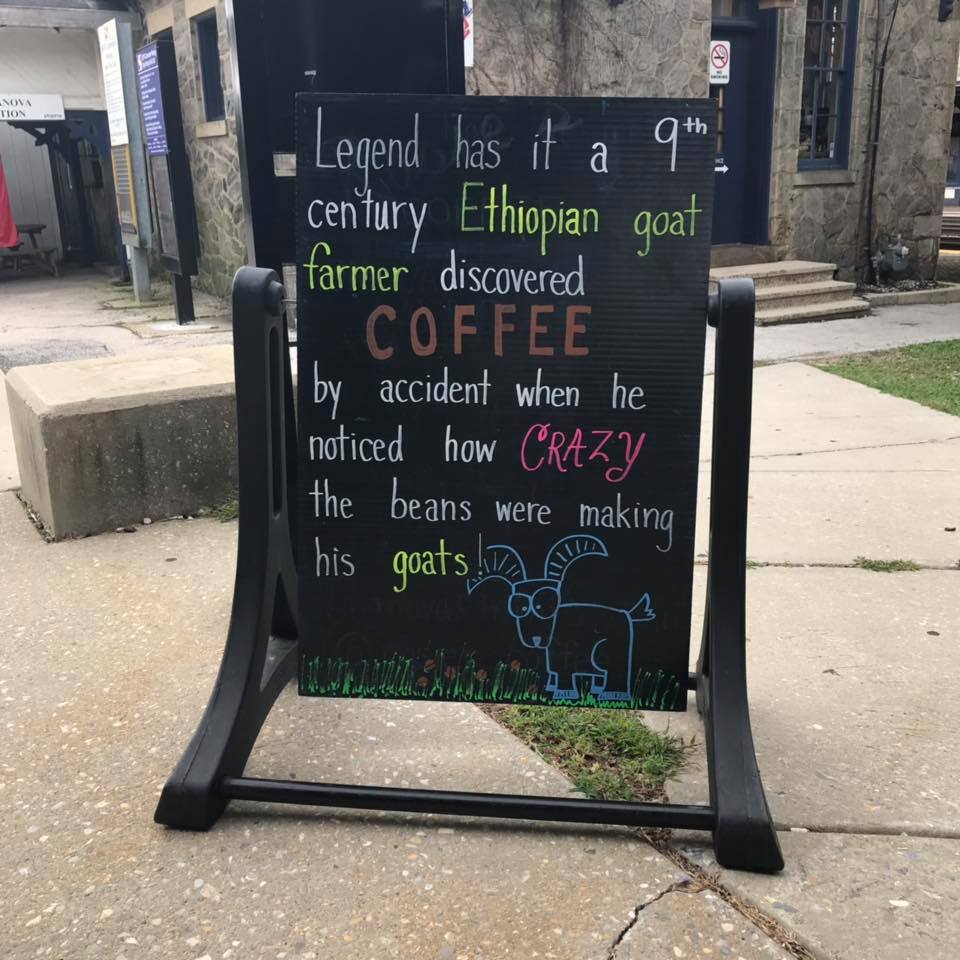 Legend has it a 9th
century Ethiopian goat
farmer discovered
COFFEE
by accident when he
noticed how CRAZY
the beans were making
his goats!
ANOVA
TION
NO
SMOKING